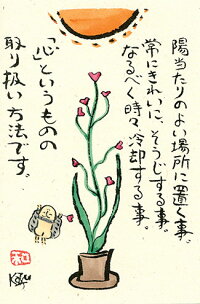 陽当たりのよい場所に置く事。
常にきれいに、そうじする事。
なるべく時々冷却する事。
「心」というものの
取り扱い方法です。
和